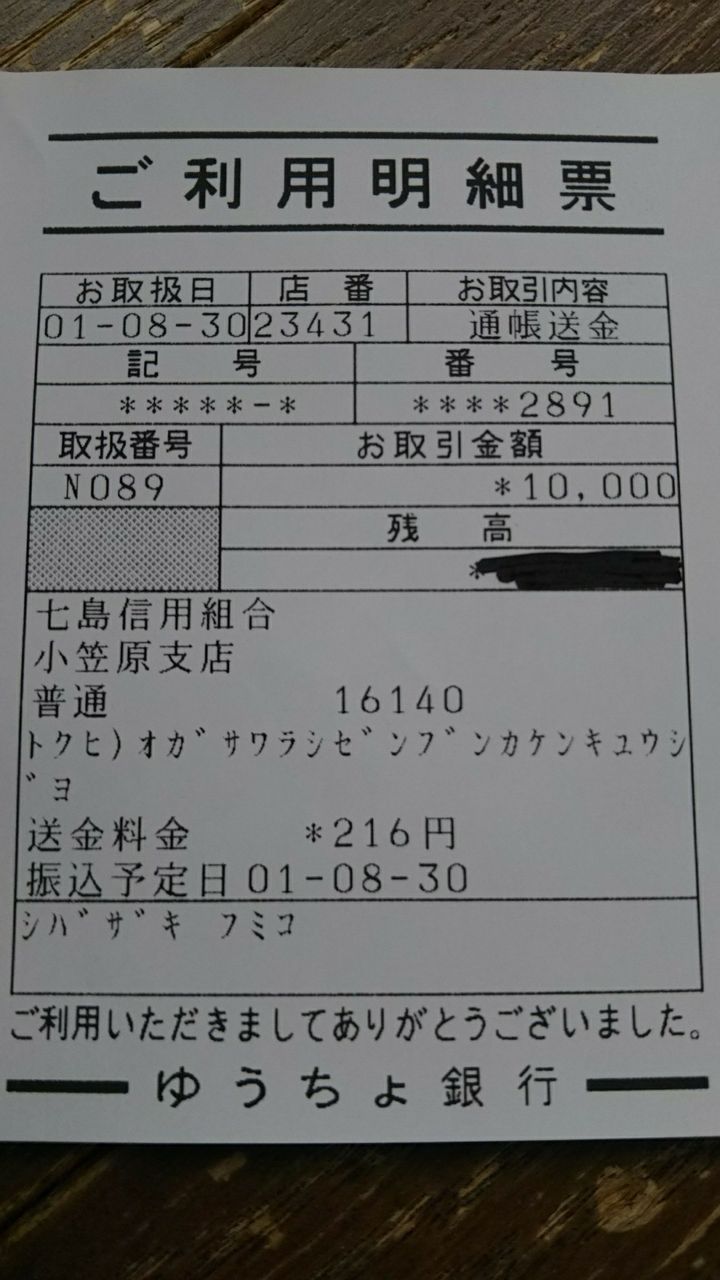 ご利用明細票
お取扱日 店番 お取引内容
01-08-30 23431 通帳送金
記号 番号
*****-* ****2891
取扱番号 お取引金額
N089 *10,000
残高
*
七島信用組合
小笠原支店
普通 16140
トクヒ)オガサワラシゼンブンカケンキユウシ
゛ヨ
送金料金 *216円
振込予定日01-08-30
シバザキ フミコ
ご利用いただきましてありがとうございました。
ゆうちょ銀行